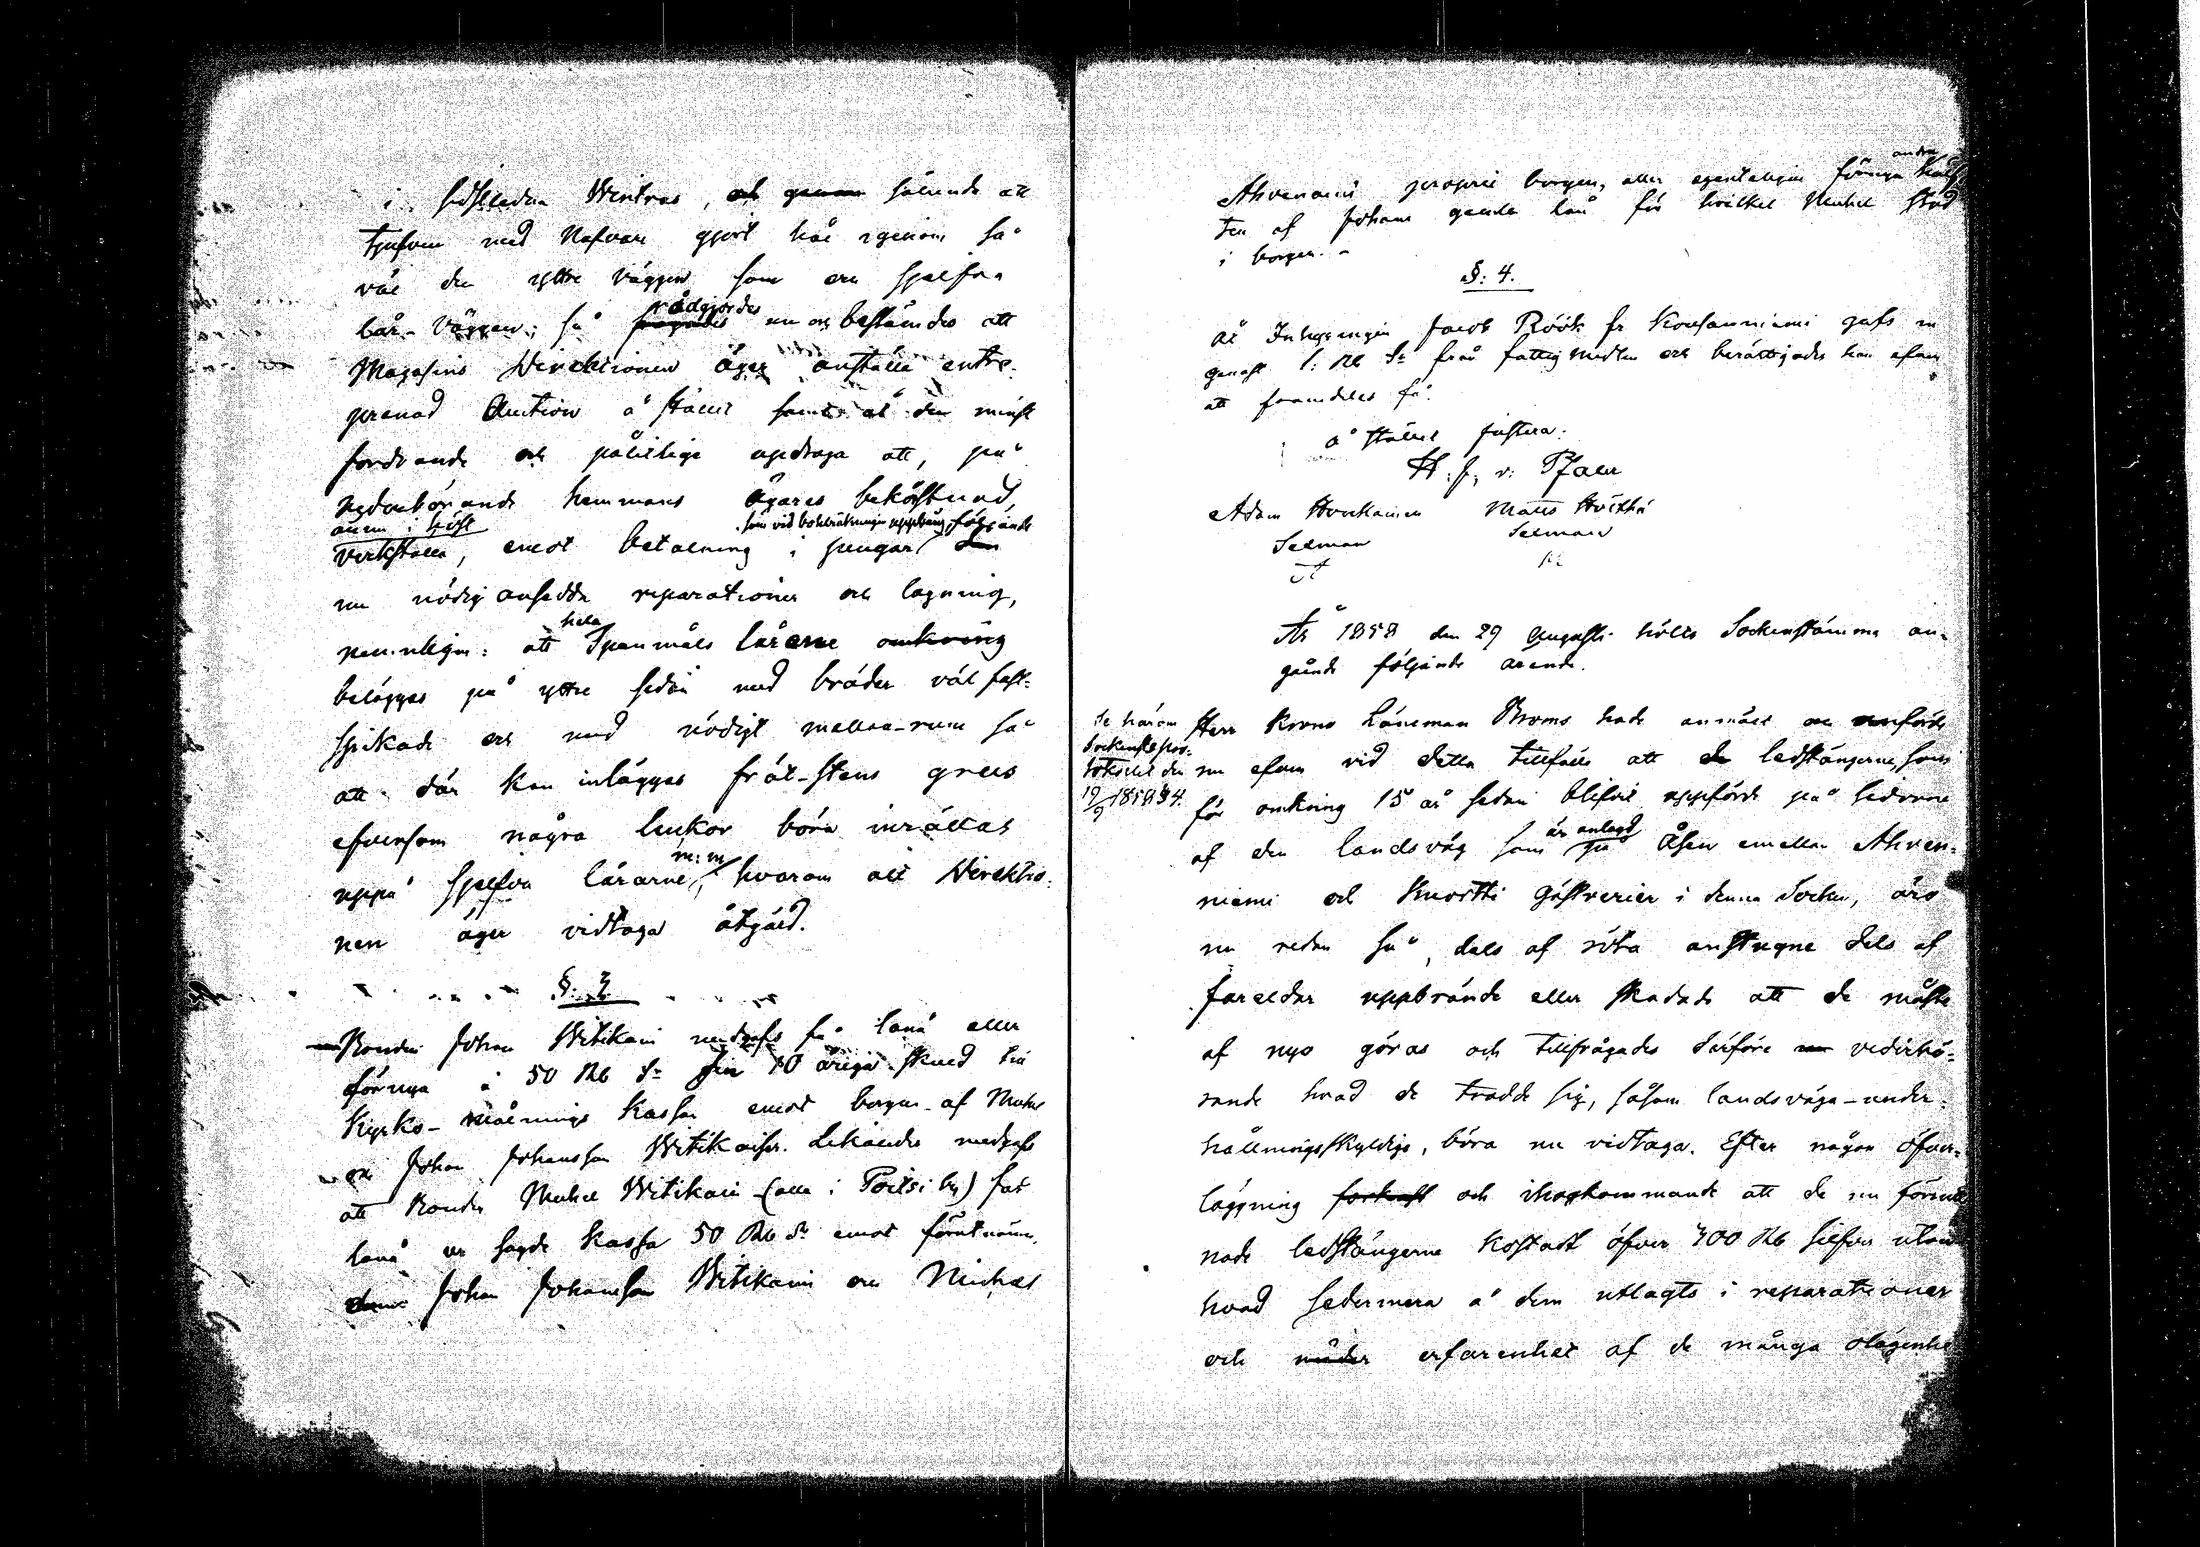 i sistledne Wintras, och genom sålunda att
tjufven med Nafvare gjort hål igenom så
väl den yttre väggen som en sjelfva
lår-väggen; så rådgjordes nu och bestämdes att
Magasins Direktionen äger anställa entre-
prenad Auction å stället samt åt den minst
fordrande och pålitlige updraga att, på
vederbörande hemmans ägares bekostnad,
ännu i höst
som vid bolsräkningen uppbäres, följande
verkställa, emot betalning i pengar
nu nödig ansedda reparationer och lagning,
nemligen: att hela Spanmåls lårarne omkring
belägges på yttre sidan med bräder väl fast-
spikade och med nödigt mellan-rum så
att där kan inläggas fräl-stens grus
äfvensom några luckor böra inrättas
uppå sjelfva lårarne, m: m; hvarom allt Direktio-
nen äger vidtaga åtgärd.
§. 3.
Bonden Johan Witikain medgafs få låna eller
förnya å 50 Rb Sr sin 10 åriga skuld till
Kyrko-målnings Kassan emot borgen af
Johan Johansson Witikain. Likaledes medgafs
att Bonden Mickel Witikain (eller i Poitsi by) får
låna ur sagde Kassa 50 Rb Sr emot förutnämn.
Johan Johansson Witikain och Michel
Ahvenaini proprie borgen, eller egenteligen förnya andra hälf-
ten af Johans gamla lån för hvilket Mickel stod
i borgen.
§: 4.
Åt Inhysingen Jacob Röök fr Kousanniemi gafs nu
genast 1: Rb Sr från fattig medlen och berättigades han äfven
att framdeles få.
å stället justera:
H. J. v: Pfaler
Adam Hovikainen Matts Hvitthi
Selman Selman
År 1858 den 29 Augusti hölls Sockenstämma an-
gående följande ärende.
Se härom
Sockenst: pro-
tokollet den
19/9 1858 § 4.
Herr Krono Länsman Broms hade anmält och anförde
nu äfven vid detta tillfälle att de ledstängerne, som
för omkring 15 år sedan blifvit uppförde på sidorne
af den landsväg som är anlagd på Åsen emellan Ahven-
niemi och Knortti Gästgerier i denna Socken, äro
nu redan så, dels af röta anstugne dels af
fareldar uppbrände eller skadade att de måste
af nyo göras och tillfrågades derföre vederbö-
rande hvad de trodde sig, såsom landsväga-under-
hållningsskyldige, böra nu vidtaga. Efter någon öfver-
läggning och ihogkommande att de nu förut
nade ledstängerne kostadt öfver 400 Rb Silfver utom
hvad sedermera å dem utlagts i reparationer
och under erfarenhet af de många olägenhe